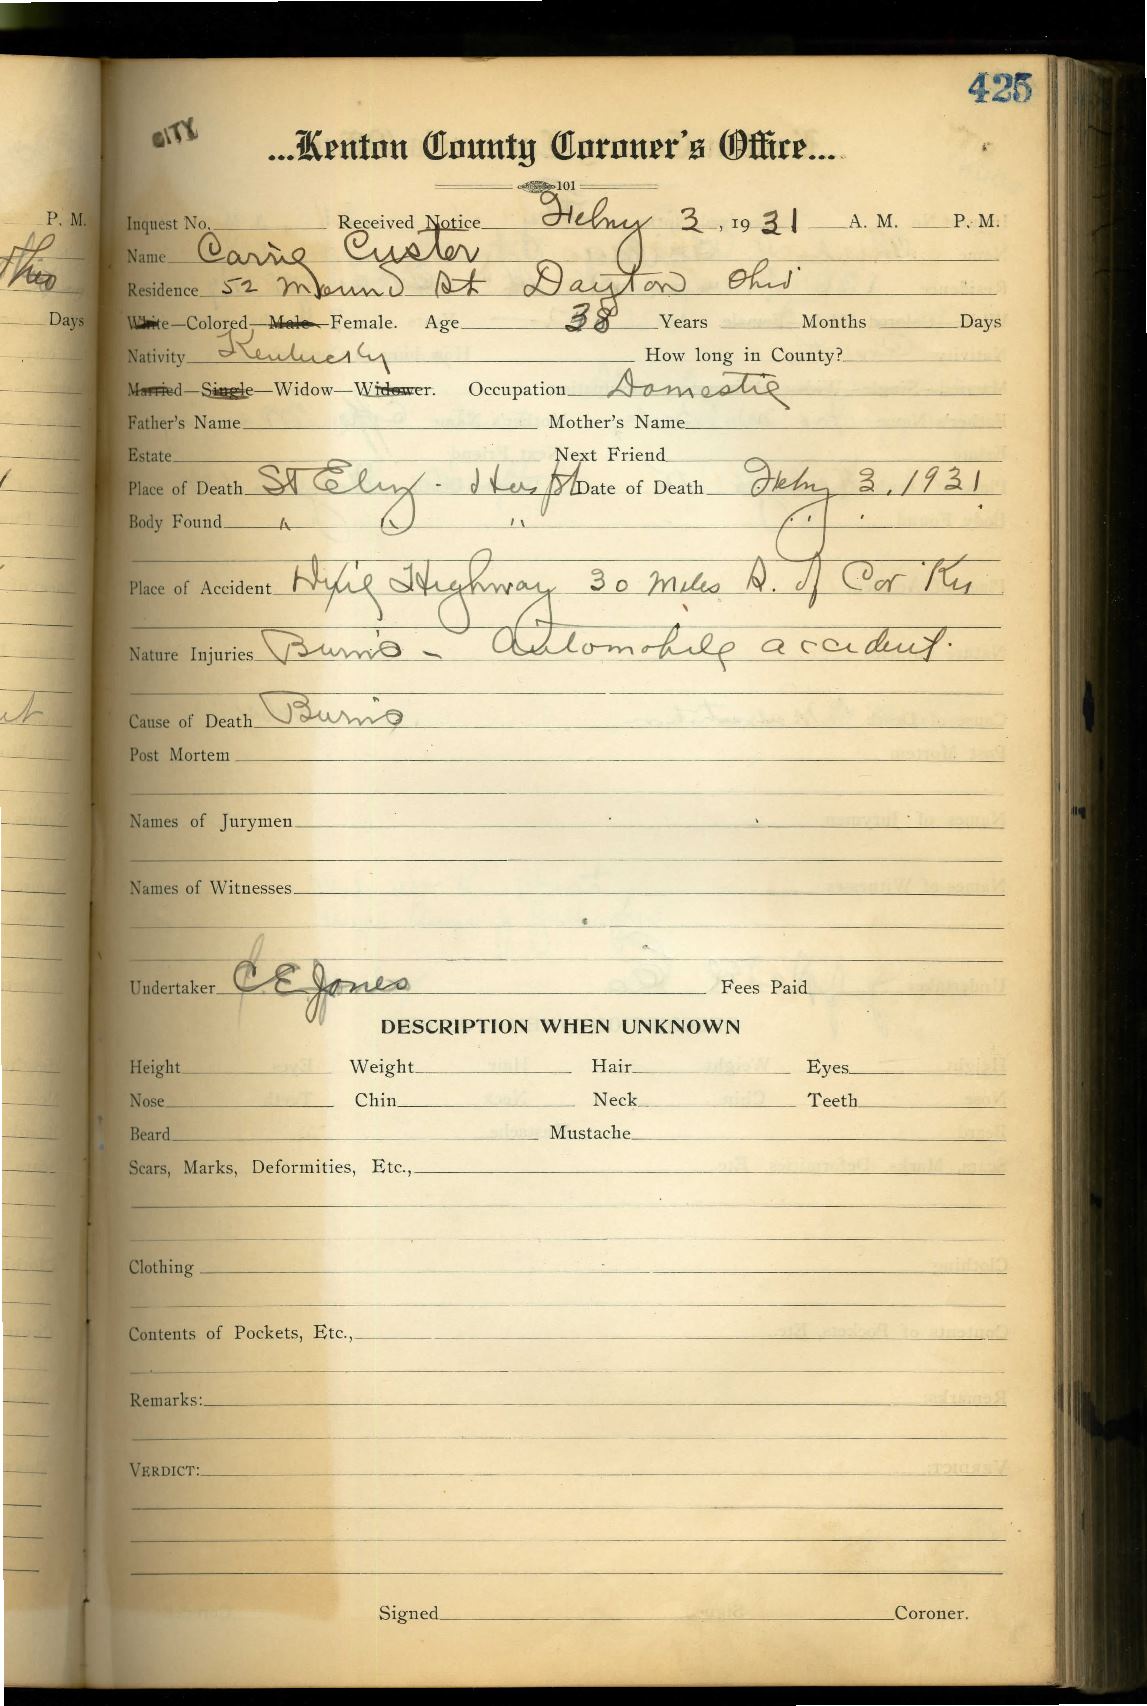 425
CITY
...Kenton County Coroner's Office...
101
P. M.
Inquest No. Received Notice Febry 3, 1931 A. M. P. M.
Name Carrie Custer
Residence 52 Mound St Dayton Ohio
Days
White—Colored, Male—Female. Age 38 Years Months Days
Nativity Kentucky How long in County?
Married—Single—Widow—Widower. Occupation Domestic
Father's Name Mother's Name
Estate Next Friend
Place of Death St Eliz - Hospt Date of Death Febry 3, 1931
Body Found " " " " "
Place of Accident Dixie Highway 30 Miles S. of Cov Ky
Nature Injuries Burns - Automobile accident.
Cause of Death Burns
Post Mortem
Names of Jurymen
Names of Witnesses
Undertaker C E Jones Fees Paid
DESCRIPTION WHEN UNKNOWN
Height Weight Hair Eyes
Nose Chin Neck Teeth
Beard Mustache
Scars, Marks, Deformities, Etc.,
Clothing
Contents of Pockets, Etc.,
Remarks:
VERDICT:
Signed Coroner.